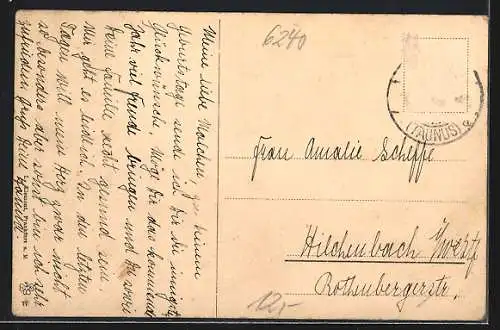 Meine liebe Malchen! Zu Deinem
Geburtstage sende ich Dir die innigsten
Glückwünsche. Möge Dir das kommende
Jahr viel Freude bringen und Du sowie
Deine Familie recht gesund sein.
Mir geht es leidlich. In den letzten
Tagen will mein Herz zwar nicht
so besonders aber sonst bin ich sehr
zufrieden. Gruß Deine
6240
(TAUNUS)
Frau Amalie Scheffe
Hilchenbach i/Westf
Rothenbergerstr.
12,-